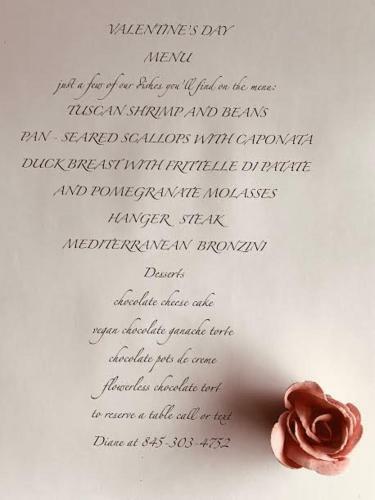 VALENTINE'S DAY
MENU
just a few of our dishes you'll find on the menu:
TUSCAN SHRIMP AND BEANS
PAN - SEARED SCALLOPS WITH CAPONATA
DUCK BREAST WITH FRITTELLE DI PATATE
AND POMEGRANATE MOLASSES
HANGER STEAK
MEDITERRANEAN BRONZINI
Desserts
chocolate cheese cake
vegan chocolate ganache torte
chocolate pots de creme
flowerless chocolate tort
to reserve a table call or text
Diane at 845-303-4752